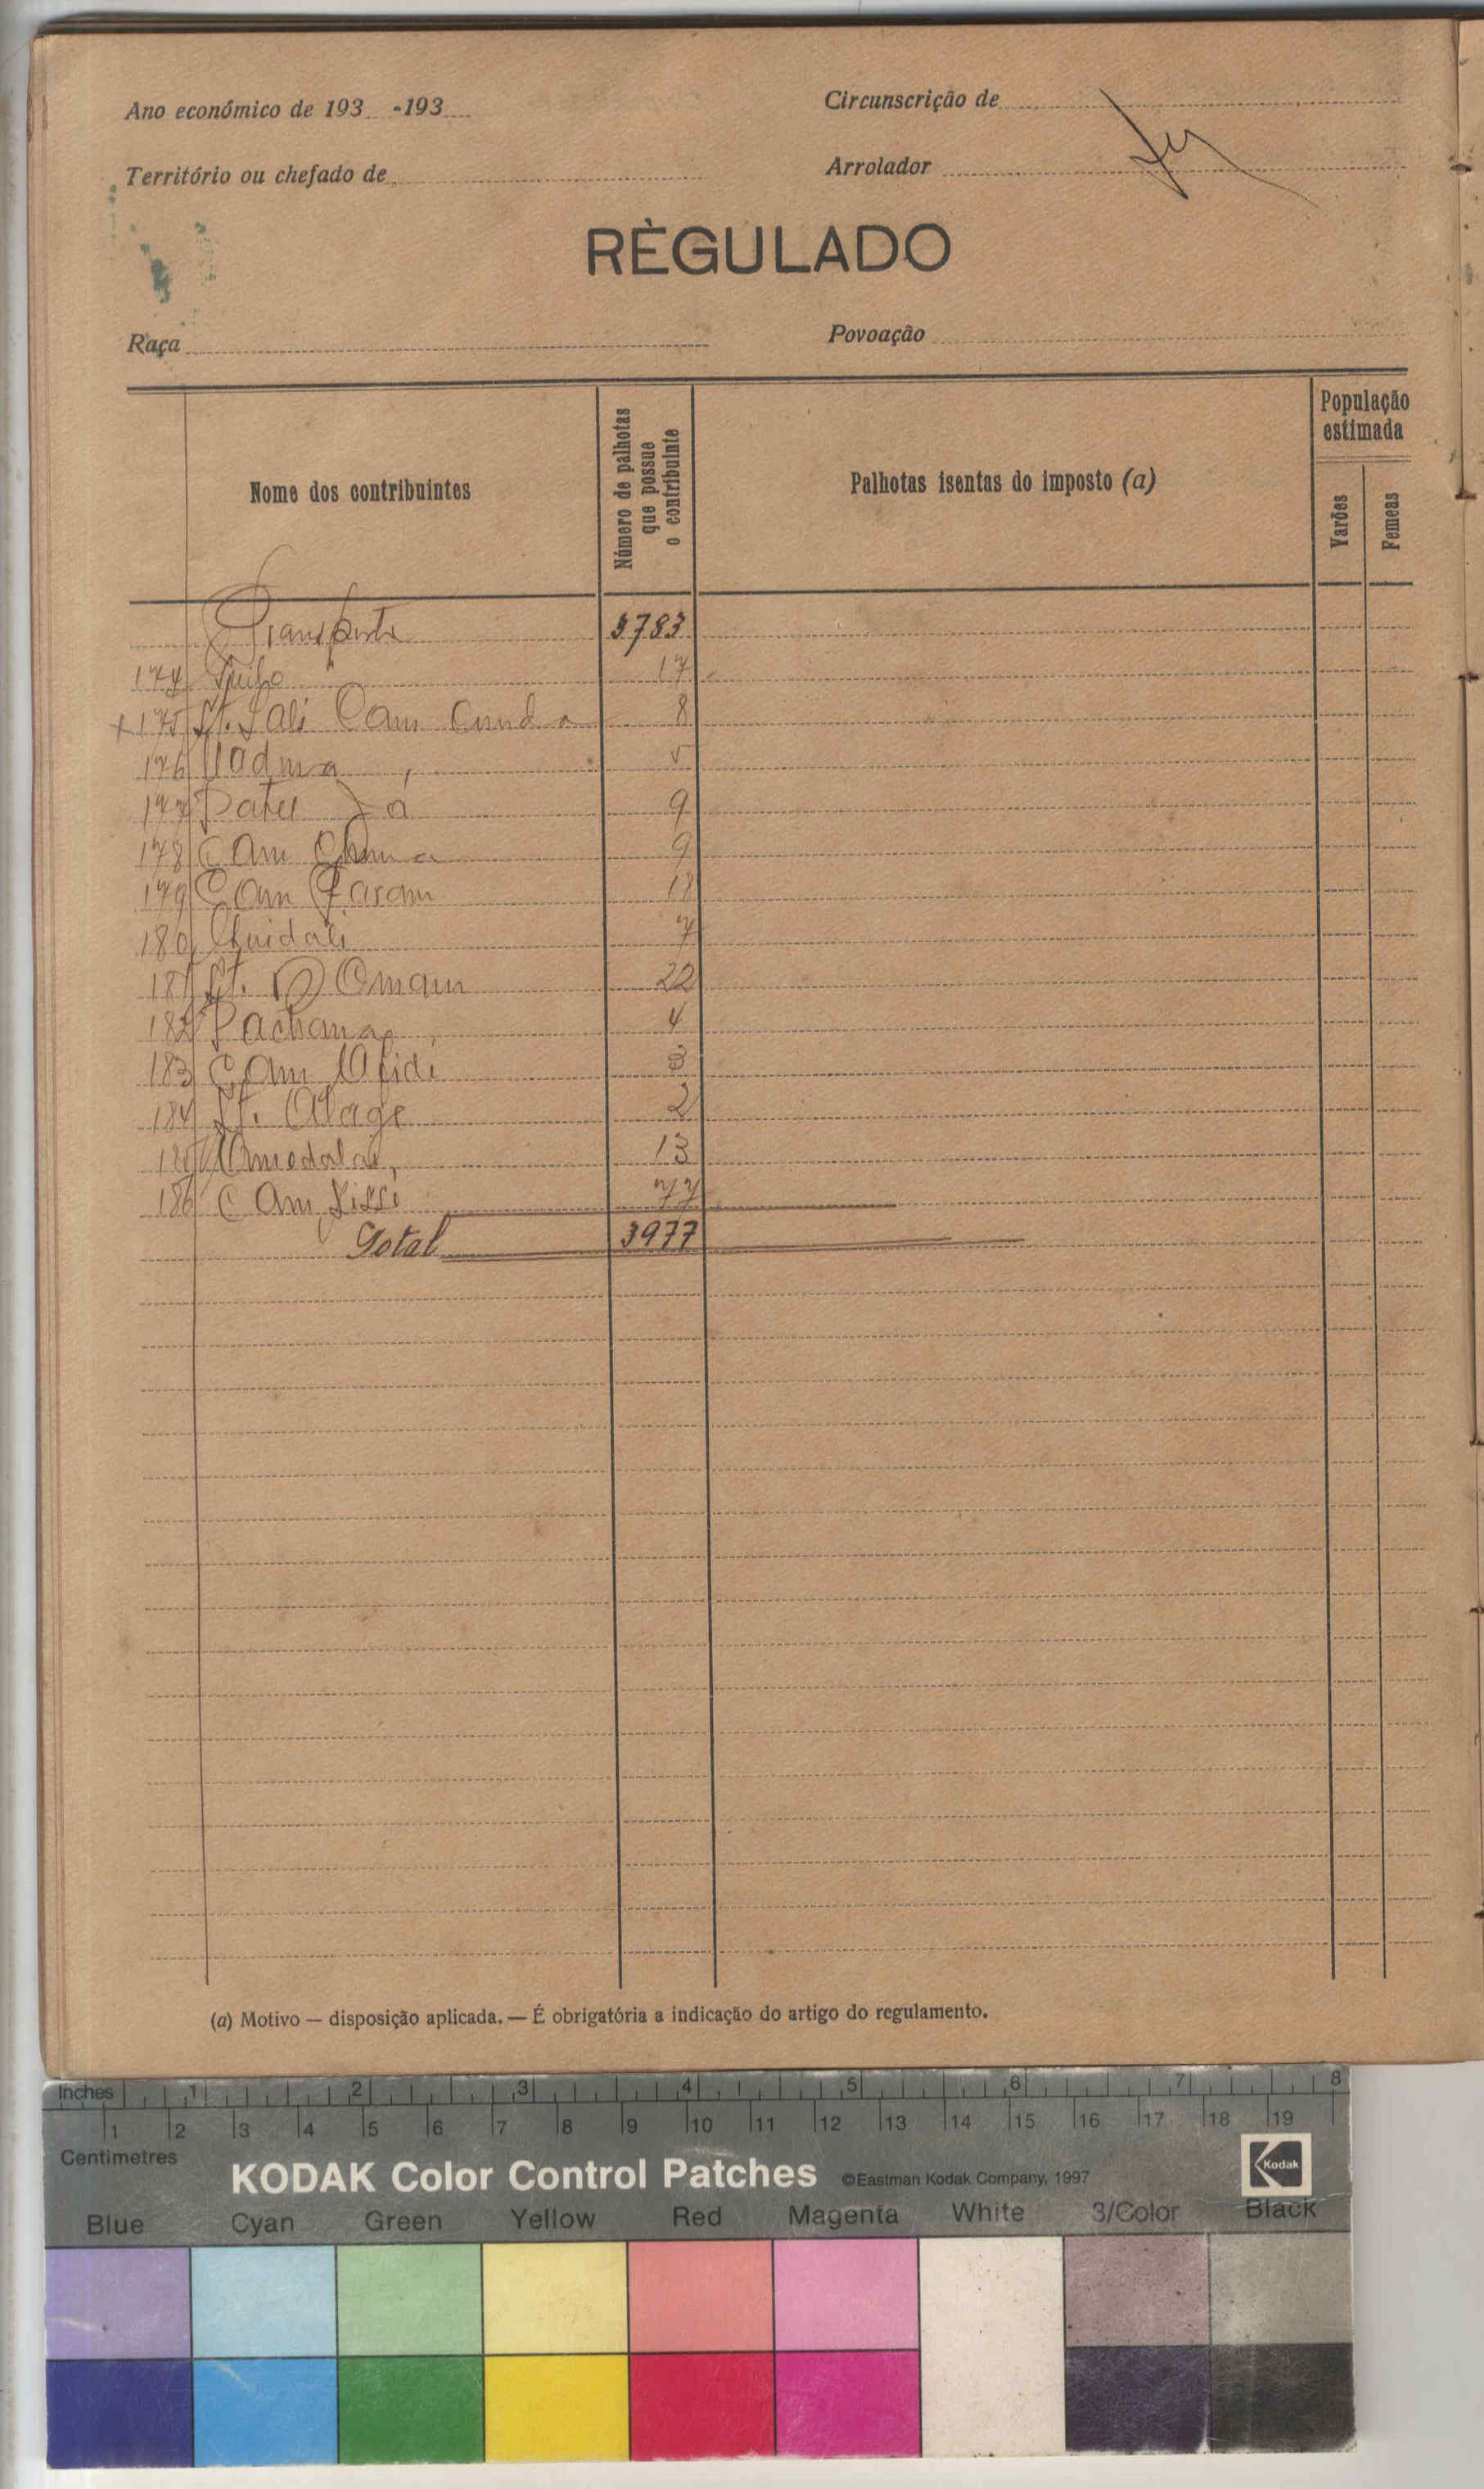 Ano económico de 193 -193
Circunscrição de
Território ou chefado de
Arrolador
RÈGULADO
Raça
Povoação
Nome dos contribuintes
Número de palhotas que possue o contribuinte
Palhotas isentas do imposto (a)
População estimada
Varões
Femeas
Transporte 3783
174 17
+ 175 St. Sali Cam Cunda 8
176 5
177 9
178 Cam 9
179 Cam Faram 18
180 7
181 St. Omam 22
182 Pachana 4
183 Cam 3
184 St. Alage 2
185 Amedalai 13
186 Cam Sissé 77
Total 3977
(a) Motivo — disposição aplicada. — É obrigatória a indicação do artigo do regulamento.
Inches 1 2 3 4 5 6 7 8
1 2 3 4 5 6 7 8 9 10 11 12 13 14 15 16 17 18 19
Centimetres
KODAK Color Control Patches ©Eastman Kodak Company, 1997 Kodak
Blue Cyan Green Yellow Red Magenta White 3/Color Black